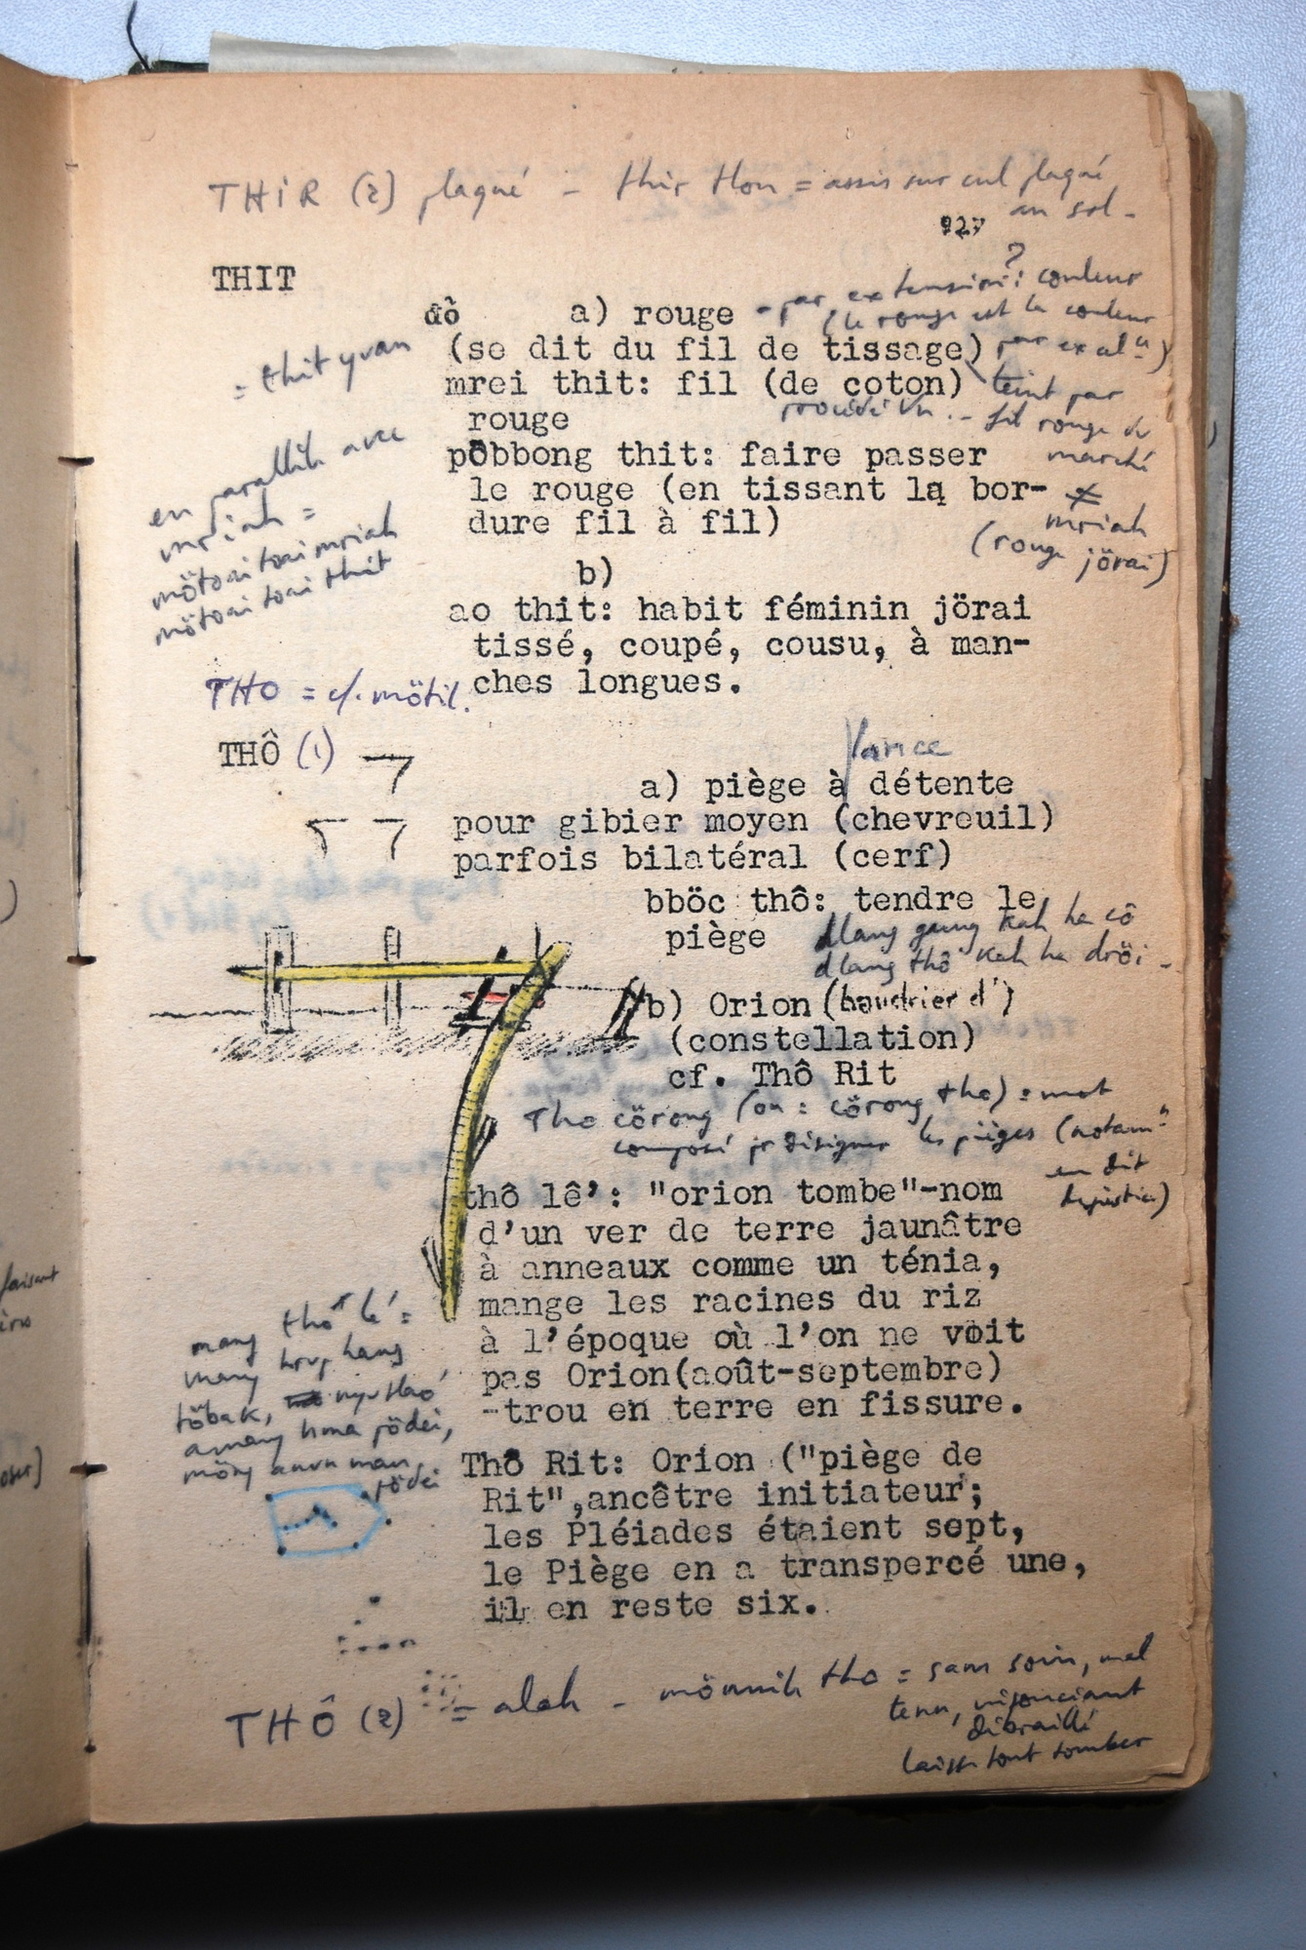 THIR (2) plaqué - thir thon = assis sur cul plaqué
au sol -
927
THIT
đỏ a) rouge - par extension : couleur
?
(le rouge est la couleur
par excel
= thit yuan
(se dit du fil de tissage)
mrei thit: fil (de coton) teint par
rouge
procédé Vn. - fil rouge du
marché
≠
mriah
(rouge jörai)
en parallèle avec
mriah =
mötoai toai mriah
mötoai toai thit
pŏbbong thit: faire passer
le rouge (en tissant la bor-
dure fil à fil)
b)
ao thit: habit féminin jörai
tissé, coupé, cousu, à man-
ches longues.
THO = cf. mötil.
THÔ (1)
lance
a) piège à détente
pour gibier moyen (chevreuil)
parfois bilatéral (cerf)
bböc thô: tendre le
piège
dlang gung kah ha cô
dlang thô kah ha dröi -
b) Orion (baudrier d')
(constellation)
cf. Thô Rit
Tho cörong (ou = cörong tho) = mot
composé pr désigner les pièges (notam
en dit
thô lê': "orion tombe"-nom
d'un ver de terre jaunâtre
à anneaux comme un ténia,
mange les racines du riz
à l'époque où l'on ne voit
pas Orion(août-septembre)
-trou en terre en fissure.
mang thô lê' =
mang hang
töbak,
amang hma pödei,
möng man
pödei
Thô Rit: Orion ("piège de
Rit",ancêtre initiateur;
les Pléiades étaient sept,
le Piège en a transpercé une,
il en reste six.
THÔ (2) = alah - mönnih tho = sans soin, mal
tenu, insouciant
débraillé
laisse tout tomber